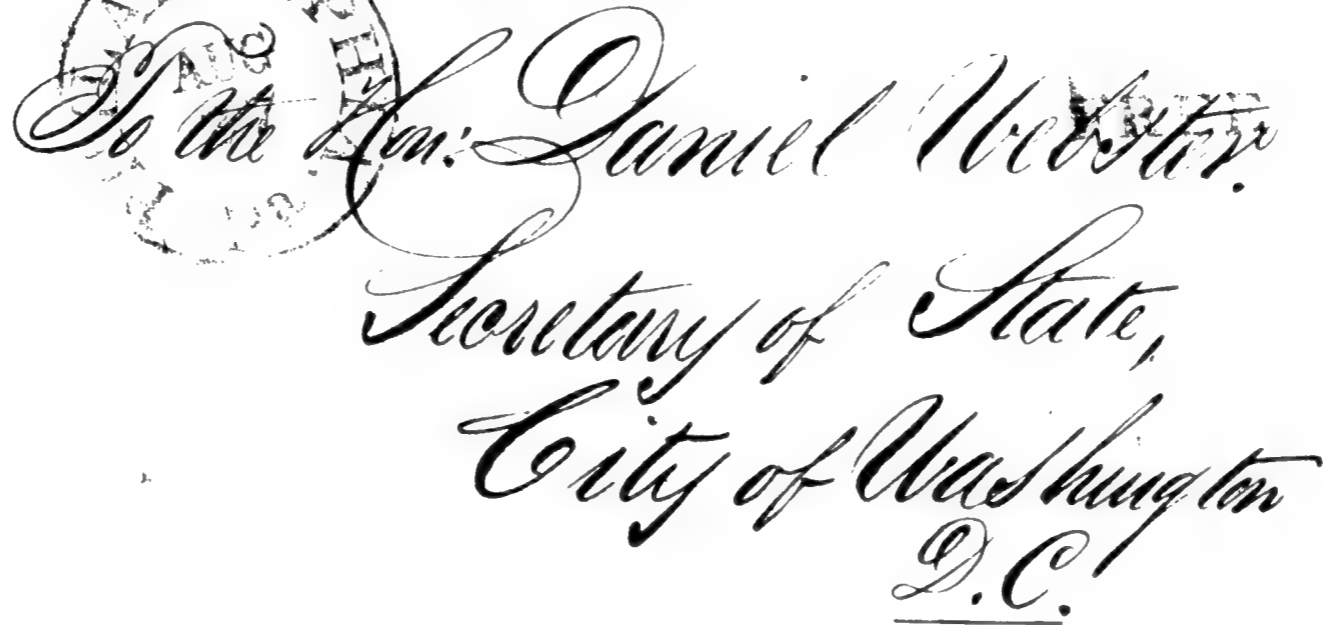 AUG
To the Hon: Daniel Webster.
Secretary of State,
City of Washington
D.C.